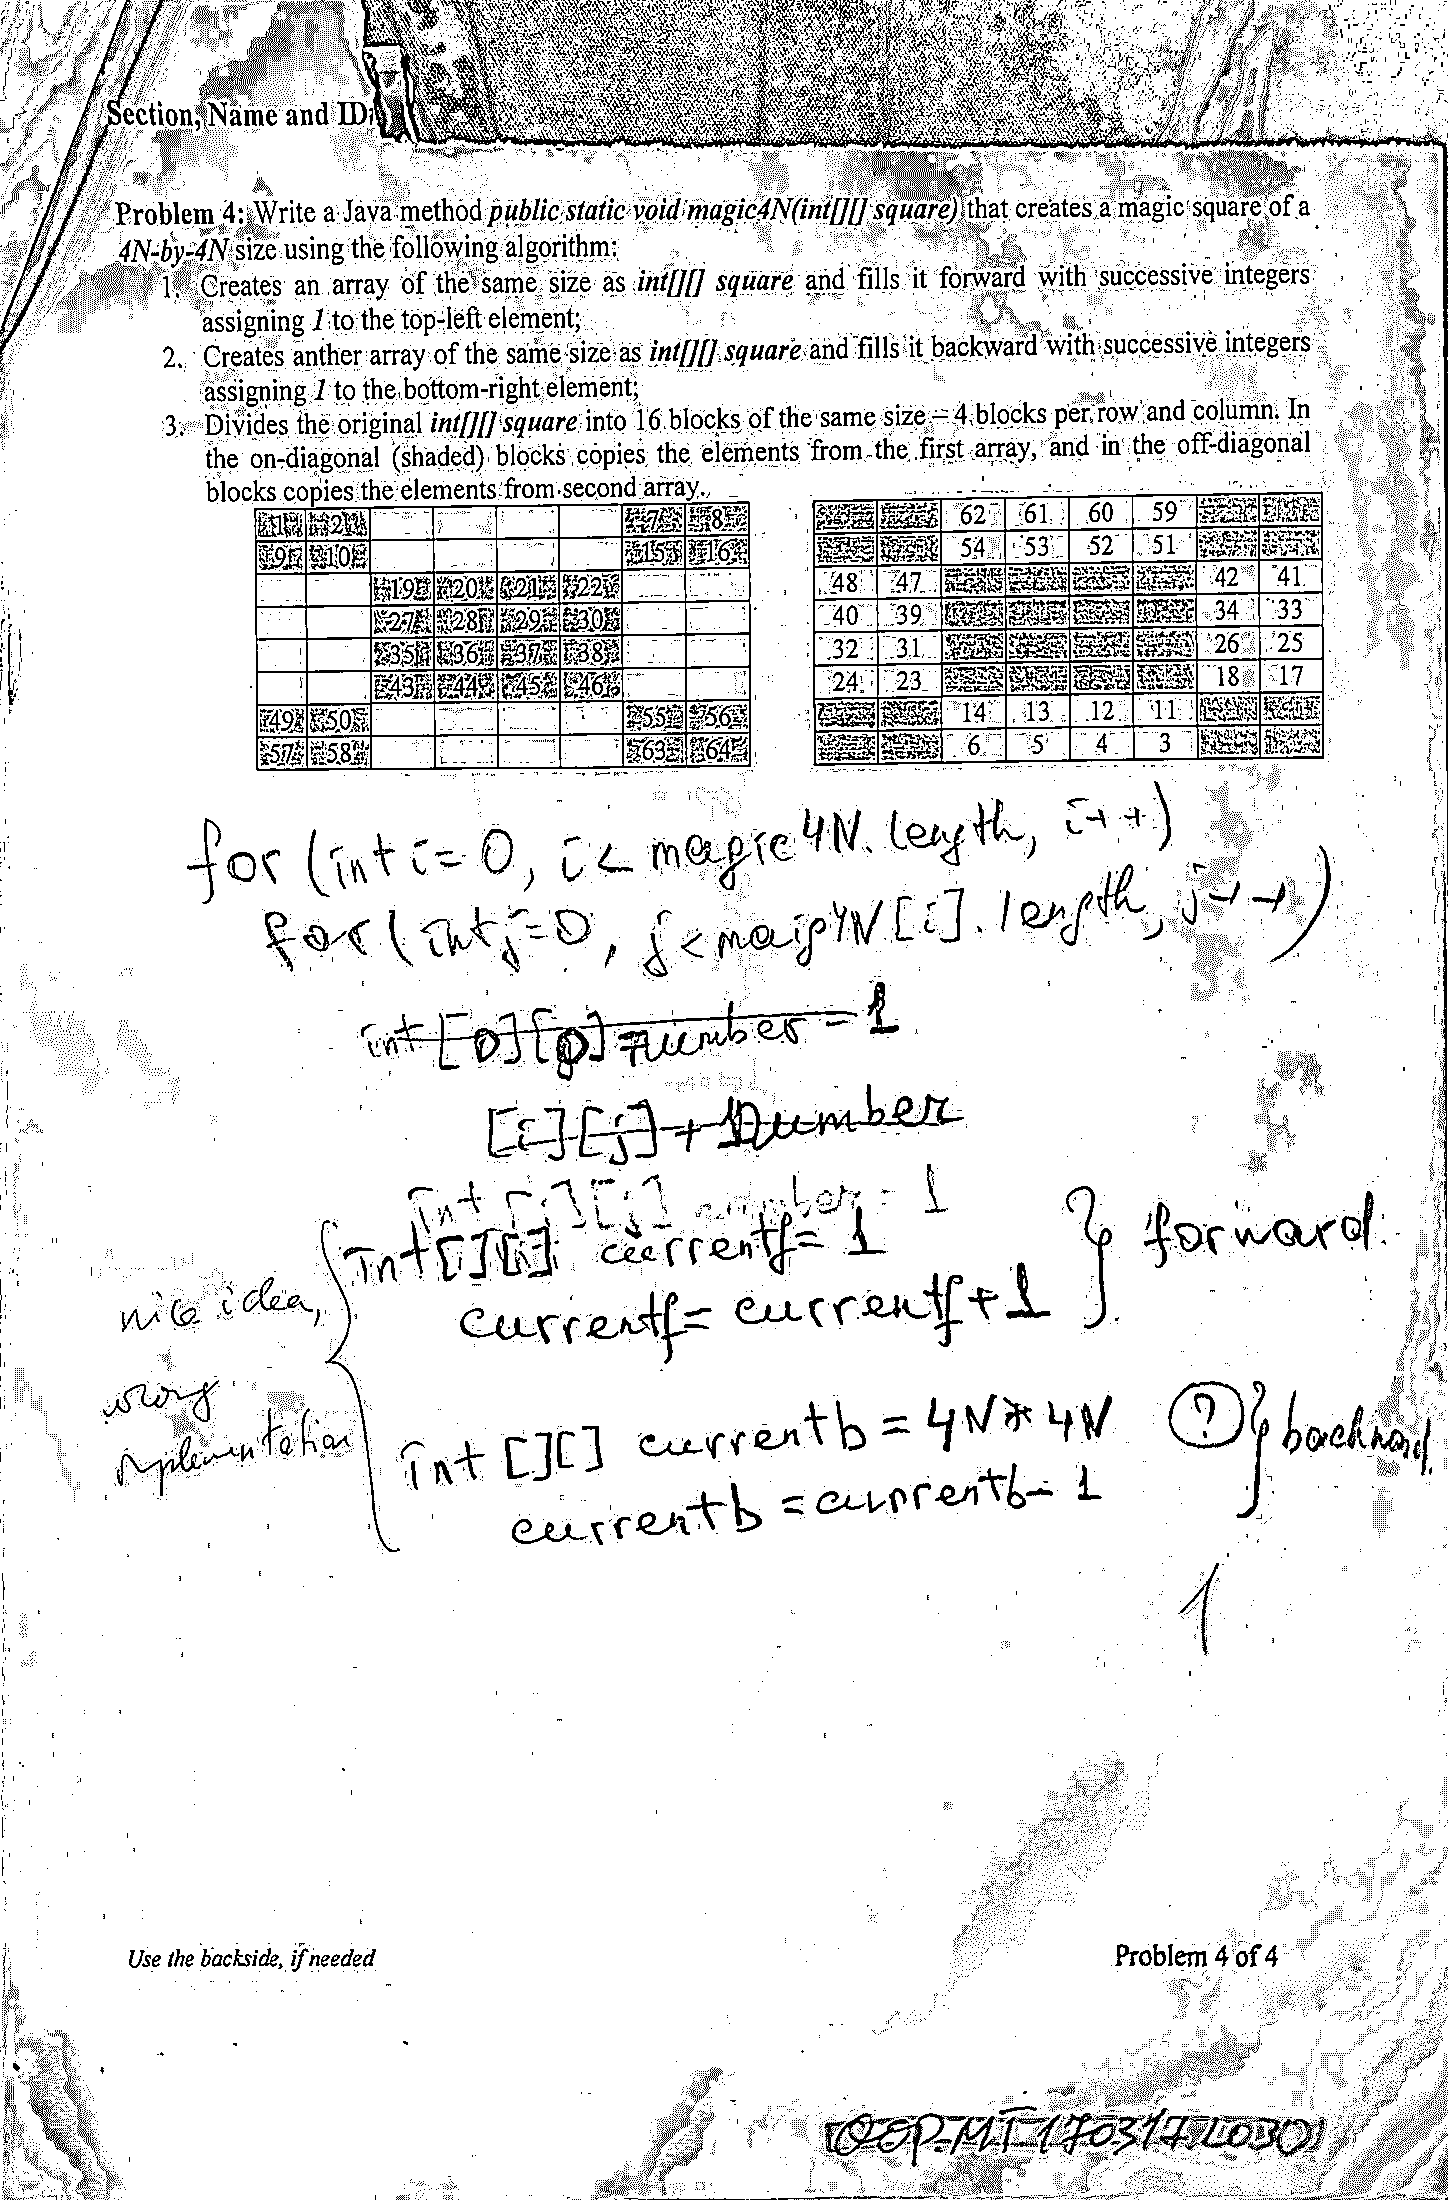 Section, Name and ID:
Problem 4: Write a Java method public static void magic4N(int[][] square) that creates a magic square of a
4N-by-4N size using the following algorithm:
1. Creates an array of the same size as int[][] square and fills it forward with successive integers
assigning 1 to the top-left element;
2. Creates anther array of the same size as int[][] square and fills it backward with successive integers
assigning 1 to the bottom-right element;
3. Divides the original int[][] square into 16 blocks of the same size – 4 blocks per row and column. In
the on-diagonal (shaded) blocks copies the elements from the first array, and in the off-diagonal
blocks copies the elements from second array.
1 2 7 8
9 10 15 16
19 20 21 22
27 28 29 30
35 36 37 38
43 44 45 46
49 50 55 56
57 58 63 64
62 61 60 59
54 53 52 51
48 47 42 41
40 39 34 33
32 31 26 25
24 23 18 17
14 13 12 11
6 5 4 3
for (int i=0, i< magic4N.length, i++)
for (int j=0, j<maig4N[i].length, j++)
int [0][0]=number = 1
[i][j] + Number
int [i][j] number = 1
int[][] currentf= 1 } forward
currentf= currentf+1
nice idea,
wrong
implementation
int [][] currentb = 4N * 4N ? } backward
currentb = currentb - 1
1
Use the backside, if needed
Problem 4 of 4
OOP-MT-170317-LOBO